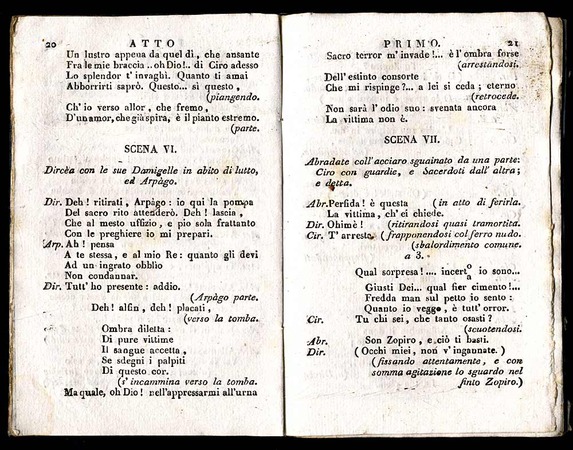 20 ATTO
Un lustro appena da quel dì, che ansante
Fra le mie braccia .. oh Dio!.. di Ciro adesso
Lo splendor t' invaghì. Quanto ti amai
Abborrirti saprò. Questo... sì questo,
(piangendo.
Ch' io verso allor, che fremo,
D'un amor, che già spira, è il pianto estremo.
(parte.
SCENA VI.
Dircèa con le sue Damigelle in abito di lutto,
ed Arpàgo.
Dir. Deh! ritirati, Arpàgo: io qui la pompa
Del sacro rito attenderò. Deh! lascia,
Che al mesto uffizio, e pio sola frattanto
Con le preghiere io mi prepari.
Arp. Ah! pensa
A te stessa, e al mio Re: quanto gli devi
Ad un ingrato obblio
Non condannar.
Dir. Tutt' ho presente: addio.
(Arpàgo parte.
Deh! alfin, deh! placati,
(verso la tomba.
Ombra diletta:
Di pure vittime
Il sangue accetta,
Se sdegni i palpiti
Di questo cor.
(s' incammina verso la tomba.
Ma quale, oh Dio! nell'appressarmi all'urna
PRIMO. 21
Sacro terror m' invade!... è l'ombra forse
(arrestandosi.
Dell' estinto consorte
Che mi rispinge?... a lei si ceda; eterno
(retrocede.
Non sarà l' odio suo: svenata ancora
La vittima non è.
SCENA VII.
Abradate coll'acciaro sguainato da una parte:
Ciro con guardie, e Sacerdoti dall' altra;
e detta.
Abr. Perfida! è questa (in atto di ferirla.
La vittima, ch' ei chiede.
Dir. Ohimè! (ritirandosi quasi tramortita.
Cir. T' arresta (frapponendosi col ferro nudo.
(sbalordimento comune.
a 3.
Qual sorpresa!.... incerto/a io sono...
Giusti Dei... qual fier cimento!...
Fredda man sul petto io sento:
Quanto io veggo, è tutt' orror.
Cir. Tu chi sei, che tanto osasti?
(scuotendosi.
Abr. Son Zopiro, e ciò ti basti.
Dir. (Occhi miei, non v' ingannate.)
(fissando attentamente, e con
somma agitazione lo sguardo nel
finto Zopiro.)